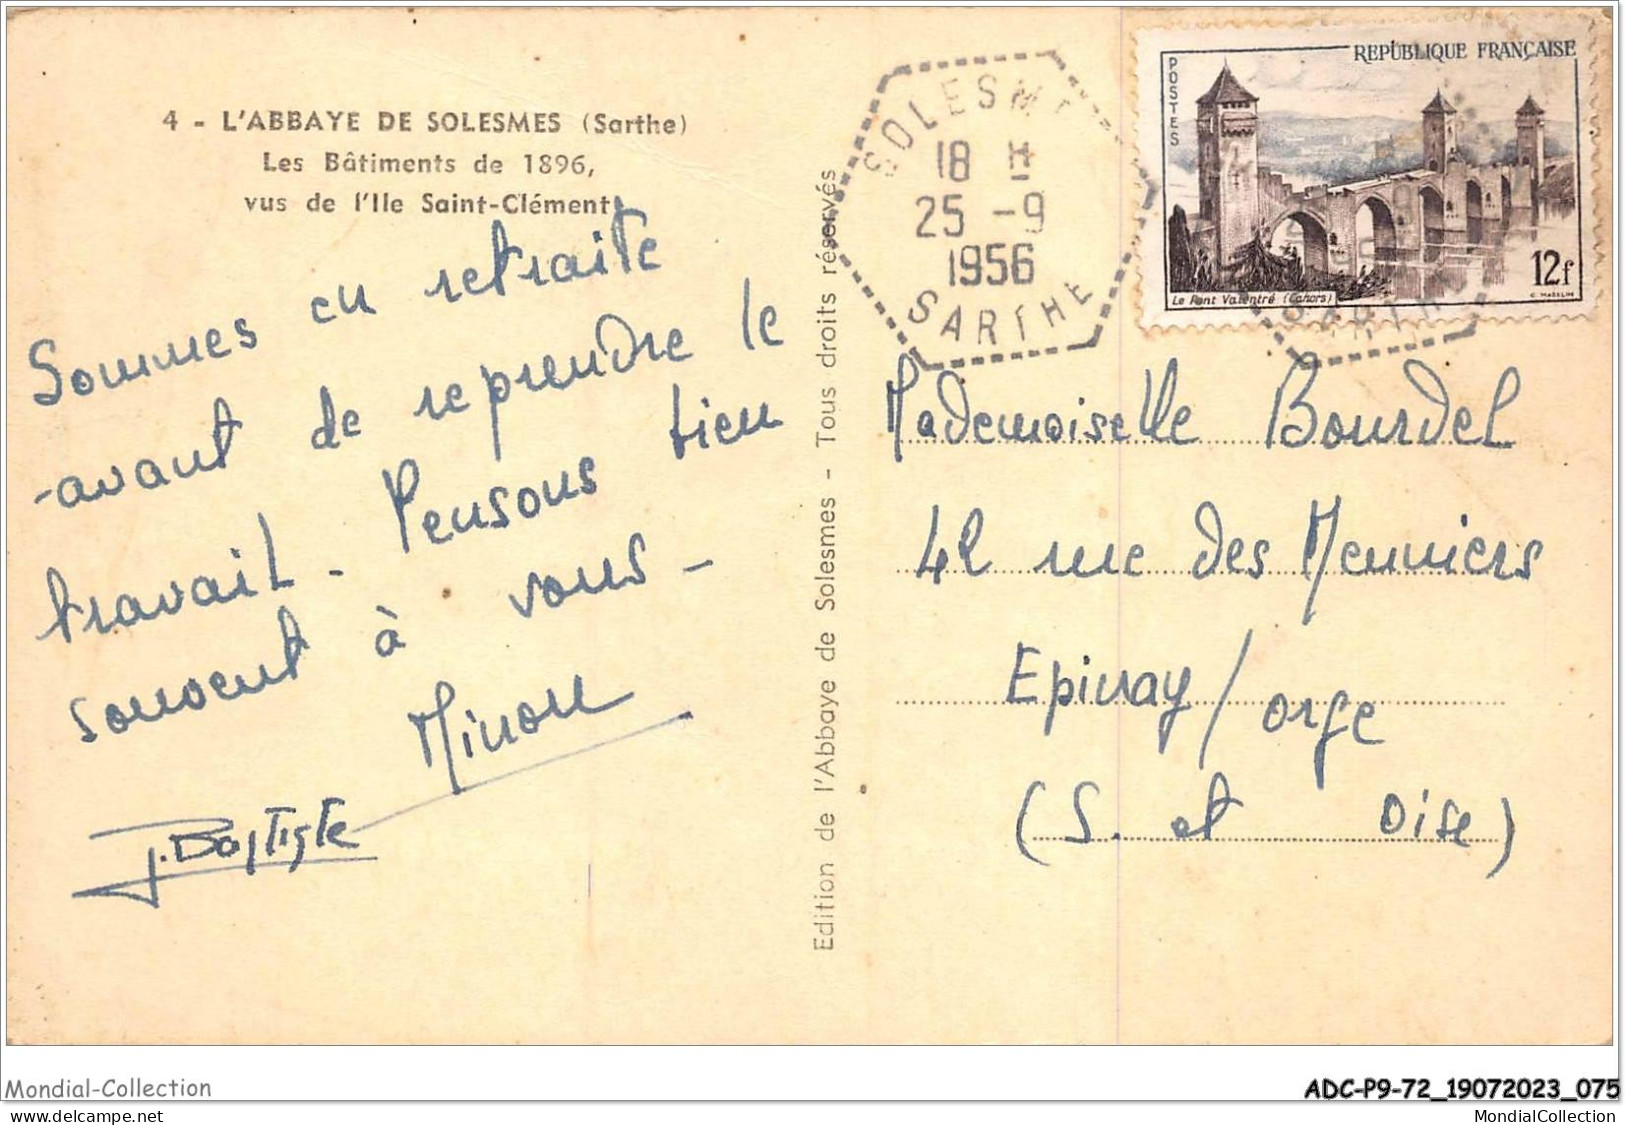 4 - L'ABBAYE DE SOLESMES (Sarthe)
Les Bâtiments de 1896,
vus de l'Ile Saint-Clément
Sommes en retraite
avant de reprendre le
travail. Pensons bien
souvent à vous -
Minou
J. Baptiste
Edition de l'Abbaye de Solesmes - Tous droits réservés
SOLESMES
18 H
25 -9
1956
SARTHE
REPUBLIQUE FRANÇAISE
POSTES
Le Pont Valentré (Cahors)
12f
C. MAZELIN
SARTHE
Mademoiselle Bourdel
42 rue des Meuniers
Epinay / Orge
(S. et Oise)
Mondial-Collection
ADC-P9-72_19072023_075
www.delcampe.net
MondialCollection